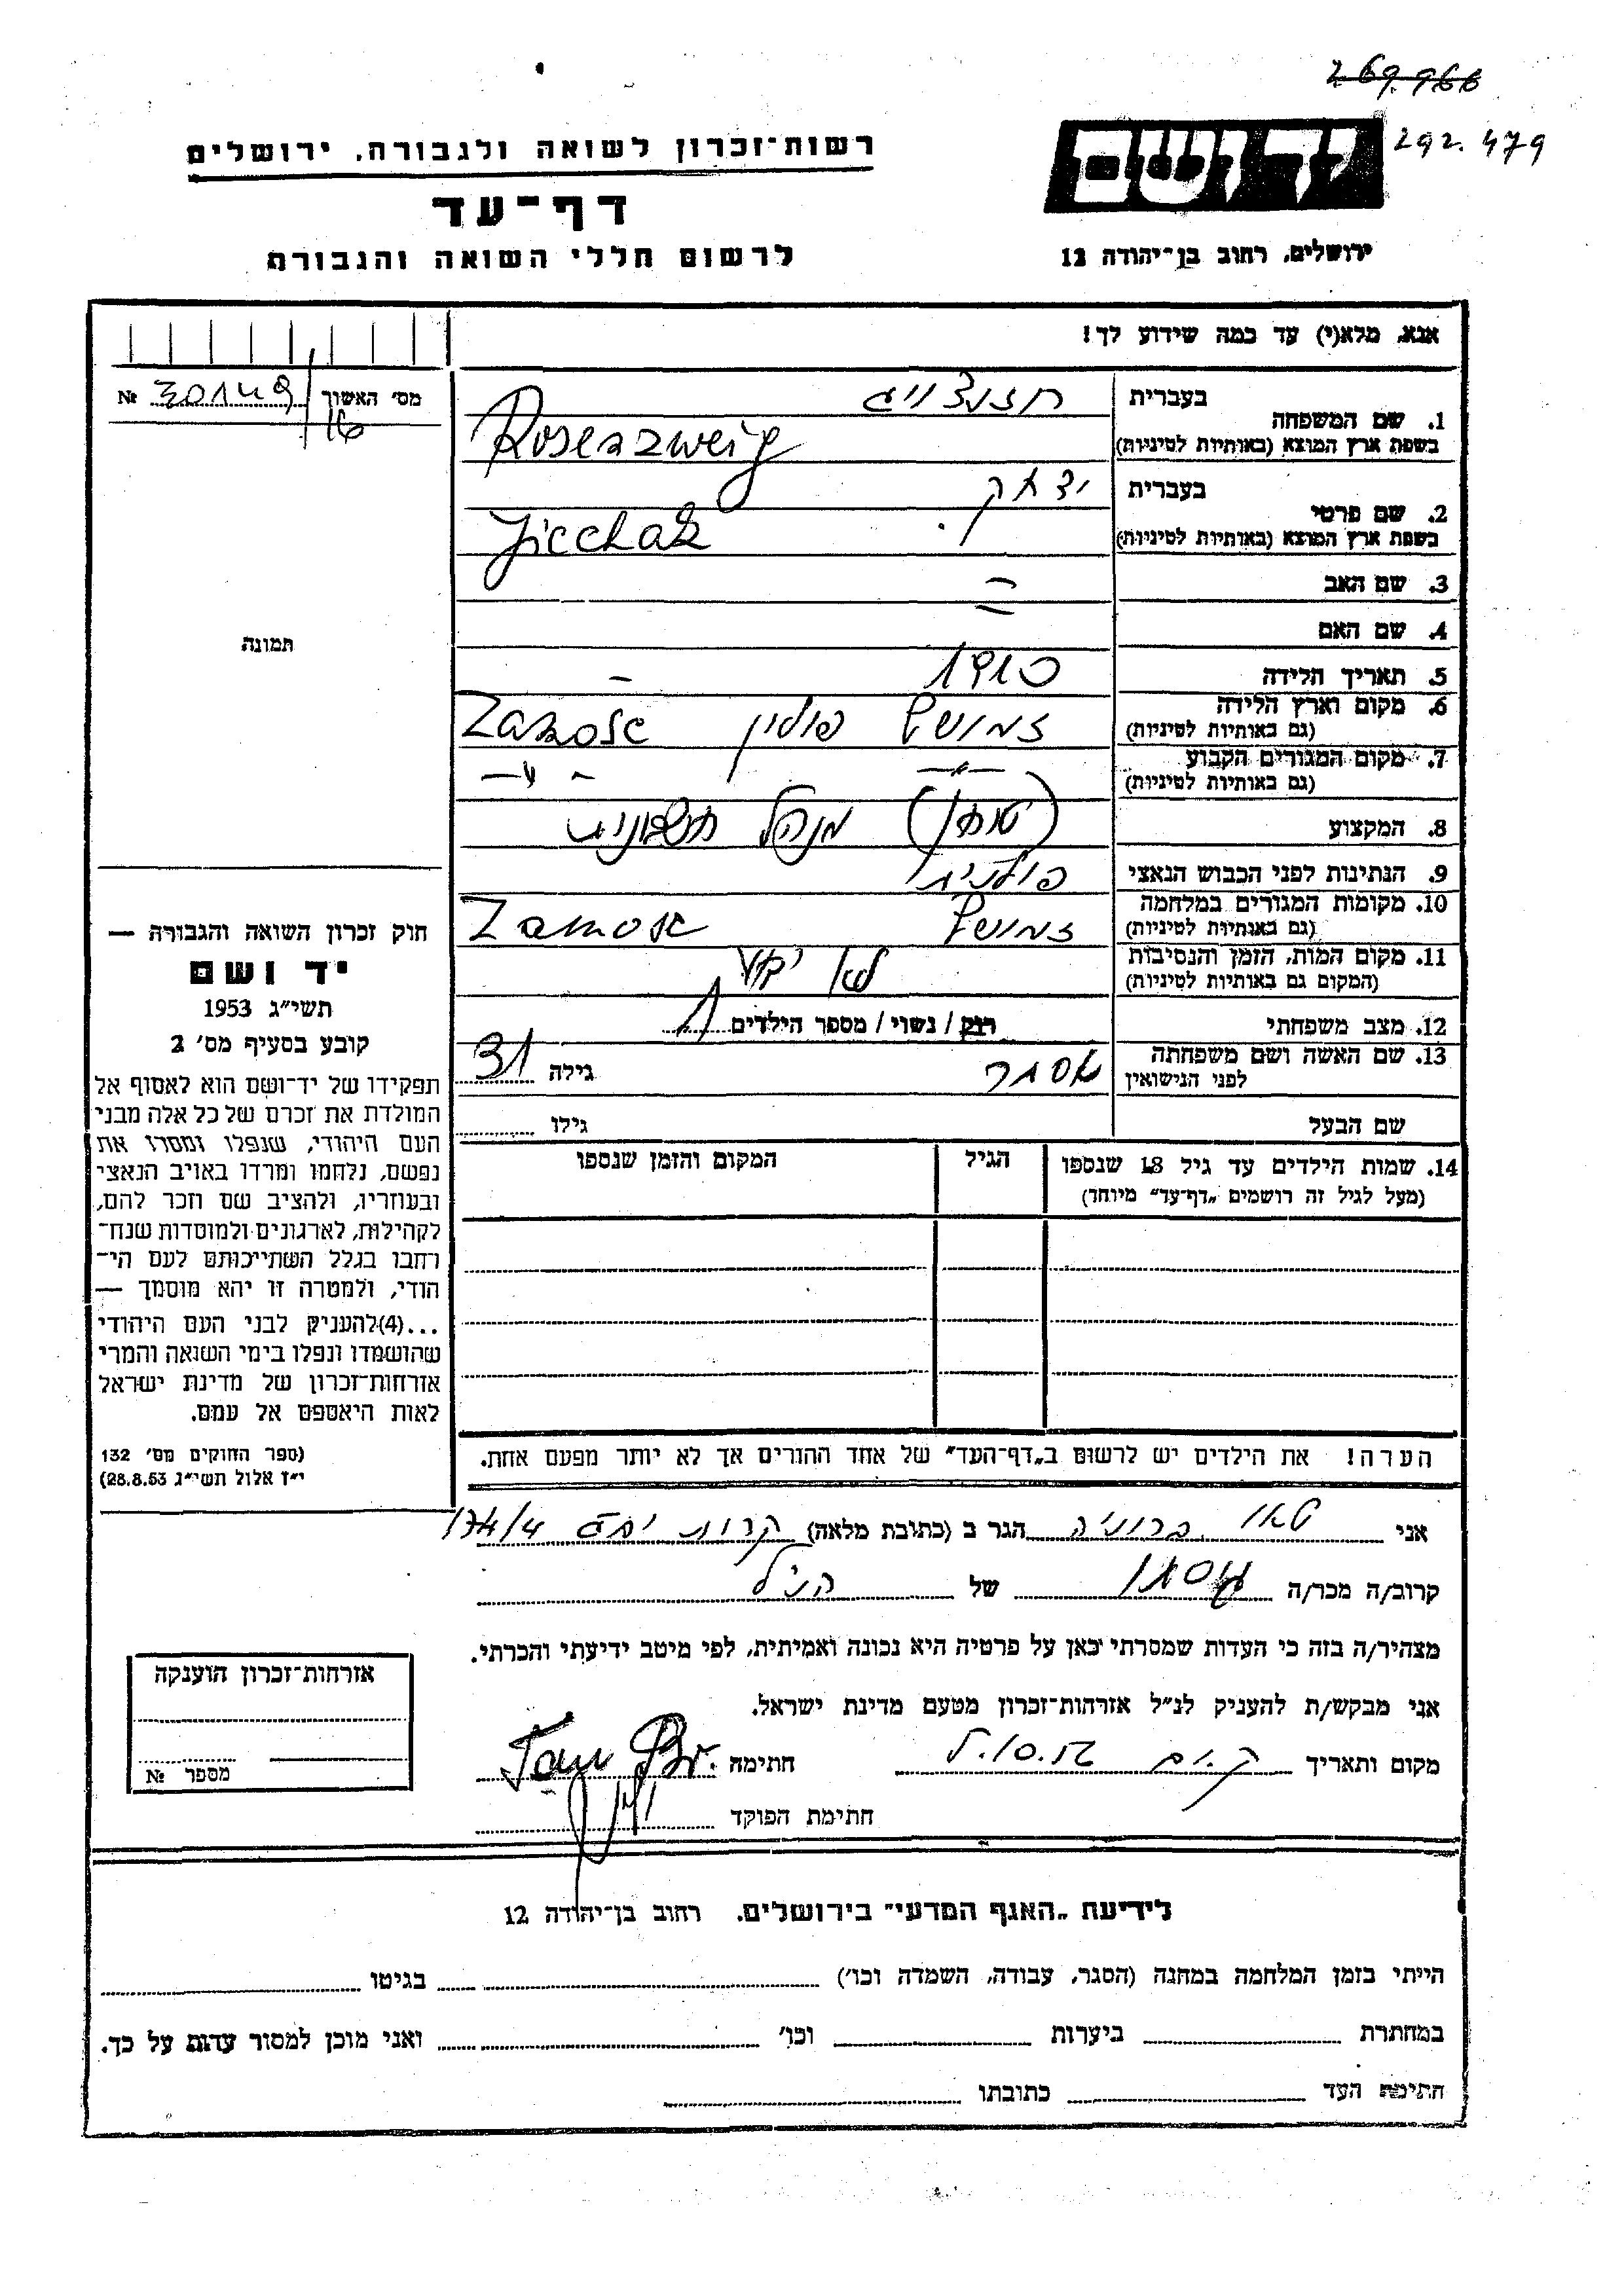 269.966
292.479
יד ושם
ירושלים, רחוב בן־יהודה 12
רשות־זכרון לשואה ולגבורה, ירושלים
דף־עד
לרשום חללי השואה והגבורה
אנא, מלא(י) עד כמה שידוע לך!
מס׳ האשוך № 301449/16
תמונה
1. שם המשפחה
בעברית רוזנצוויג
בשפת ארץ המוצא (באותיות לטיניות) Rosenzweig
2. שם פרטי
בעברית יצחק
בשפת ארץ המוצא (באותיות לטיניות) Jicchak
3. שם האב
4. שם האם
5. תאריך הלידה 1910
6. מקום וארץ הלידה זמושץ פולין Zamość
(גם באותיות לטיניות)
7. מקום המגורים הקבוע
(גם באותיות לטיניות)
8. המקצוע מנהל חשבונות
9. הנתינות לפני הכבוש הנאצי פולנית
10. מקומות המגורים במלחמה זמושץ Zamość
(גם באותיות לטיניות)
11. מקום המות, הזמן והנסיבות לא ידוע
(המקום גם באותיות לטיניות)
12. מצב משפחתי רווק / נשוי / מספר הילדים 1
13. שם האשה ושם משפחתה אסתר גילה 31
לפני הנישואין
שם הבעל גילו
14. שמות הילדים עד גיל 18 שנספו הגיל המקום והזמן שנספו
(מעל לגיל זה רושמים „דף־עד״ מיוחד)
הערה! את הילדים יש לרשום ב„דף־העד״ של אחד ההורים אך לא יותר מפעם אחת.
חוק זכרון השואה והגבורה —
יד ושם
תשי״ג 1953
קובע בסעיף מס׳ 2
תפקידו של יד־ושם הוא לאסוף אל
המולדת את זכרם של כל אלה מבני
העם היהודי, שנפלו ומסרו את
נפשם, נלחמו ומרדו באויב הנאצי
ובעוזריו, ולהציב שם וזכר להם,
לקהילות, לארגונים ולמוסדות שנח־
רחבו בגלל השתייכותם לעם הי־
הודי, ולמטרה זו יהא מוסמך —
...(4) להעניק לבני העם היהודי
שהושמדו ונפלו בימי השואה והמרי
אזרחות־זכרון של מדינת ישראל
לאות היאספם אל עמם.
(ספר החוקים מס׳ 132
י״ז אלול תשי״ג 28.8.53)
אני טאו ברוניה הגר ב (כתובת מלאה) קרית ים 174/4
קרוב/ה מכר/ה של הנ״ל
מצהיר/ה בזה כי העדות שמסרתי כאן על פרטיה היא נכונה ואמיתית, לפי מיטב ידיעתי והכרתי.
אני מבקש/ת להעניק לנ״ל אזרחות־זכרון מטעם מדינת ישראל.
מקום ותאריך ק. ים חתימה Tau Br.
חתימת הפוקד
אזרחות־זכרון הוענקה
מספר №
לידיעת „האגף המדעי״ בירושלים, רחוב בן־יהודה 12
הייתי בזמן המלחמה במחנה (הסגר, עבודה, השמדה וכו׳) בגיטו
במחתרת ביערות וכו׳ ואני מוכן למסור עדות על כך.
חתימת העד כתובתו